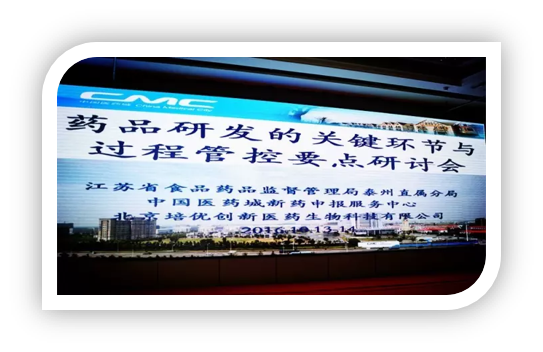 CMC
药品研发的关键环节与
过程管控要点研讨会
江苏省食品药品监督管理局泰州直属分局
中国医药城新药申报服务中心
北京培优创新医药生物科技有限公司
2016.10.13-14